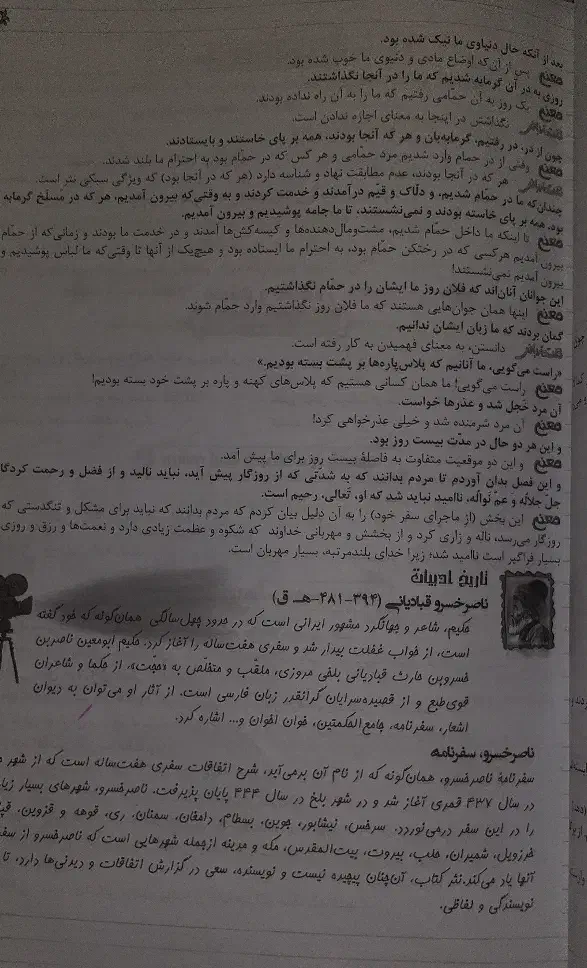 بعد از آنکه حال دنیاوی ما نیک شده بود.
معنی پس از آن‌که اوضاع مادی و دنیوی ما خوب شده بود.
روزی به در آن گرمابه شدیم که ما را در آنجا نگذاشتند.
معنی یک روز به آن حمّامی رفتیم که ما را به آن راه نداده بودند.
نگذاشتن در اینجا به معنای اجازه ندادن است.
چون از در، در رفتیم، گرمابه‌بان و هر که آنجا بودند، همه بر پای خاستند و بایستادند.
معنی وقتی از در حمام وارد شدیم مرد حمّامی و هر کس که در حمّام بود به احترام ما بلند شدند.
هر که در آنجا بودند، عدم مطابقت نهاد و شناسه دارد (هر که در آنجا بود) که ویژگی سبکی نثر است.
چندان‌که ما در حمّام شدیم، و دلّاک و قیّم درآمدند و خدمت کردند و به وقتی‌که بیرون آمدیم، هر که در مسلخ گرمابه
بود، همه بر پای خاسته بودند و نمی‌نشستند، تا ما جامه پوشیدیم و بیرون آمدیم.
معنی تا اینکه ما داخل حمّام شدیم، مشت‌ومال‌دهنده‌ها و کیسه‌کش‌ها آمدند و در خدمت ما بودند و زمانی‌که از حمّام
بیرون آمدیم هرکسی که در رختکن حمّام بود، به احترام ما ایستاده بود و هیچ‌یک از آنها تا وقتی‌که ما لباس پوشیدیم و
بیرون آمدیم نمی‌نشستند!
این جوانان آنان‌اند که فلان روز ما ایشان را در حمّام نگذاشتیم.
معنی اینها همان جوان‌هایی هستند که ما فلان روز نگذاشتیم وارد حمّام شوند.
گمان بردند که ما زبان ایشان ندانیم.
دانستن، به معنای فهمیدن به کار رفته است.
«راست می‌گویی، ما آنانیم که پلاس‌پاره‌ها بر پشت بسته بودیم.»
معنی راست می‌گویی! ما همان کسانی هستیم که پلاس‌های کهنه و پاره بر پشت خود بسته بودیم!
آن مرد خجل شد و عذرها خواست.
معنی آن مرد شرمنده شد و خیلی عذرخواهی کرد!
و این هر دو حال در مدّت بیست روز بود.
معنی و این دو موقعیت متفاوت به فاصلهٔ بیست روز برای ما پیش آمد.
و این فصل بدان آوردم تا مردم بدانند که به شدّتی که از روزگار پیش آید، نباید نالید و از فضل و رحمت کردگار
جلّ جلاله و عمّ نواله، ناامید نباید شد که او، تعالی، رحیم است.
معنی این بخش (از ماجرای سفر خود) را به آن دلیل بیان کردم که مردم بدانند که نباید برای مشکل و تنگدستی که
روزگار می‌رسد، ناله و زاری کرد و از بخشش و مهربانی خداوند که شکوه و عظمت زیادی دارد و نعمت‌ها و رزق و روزی
بسیار فراگیر است ناامید شد؛ زیرا خدای بلندمرتبه، بسیار مهربان است.
تاریخ ادبیات
ناصر خسرو قبادیانی (۳۹۴-۴۸۱-هـ ق)
حکیم، شاعر و جهانگرد مشهور ایرانی است که در حدود چهل‌سالگی همان‌گونه که خود گفته
است، از خواب غفلت بیدار شد و سفری هفت‌ساله را آغاز کرد. حکیم ابومعین ناصربن
خسروبن حارث قبادیانی بلخی مروزی، ملقّب و متخلّص به «حجت»، از حکما و شاعران
قوی‌طبع و از قصیده‌سرایان گرانقدر زبان فارسی است. از آثار او می‌توان به دیوان
اشعار، سفرنامه، جامع‌الحکمتین، خوان اخوان و... اشاره کرد.
ناصرخسرو، سفرنامه
سفرنامهٔ ناصرخسرو، همان‌گونه که از نام آن برمی‌آید، شرح اتفاقات سفری هفت‌ساله است که از شهر
در سال ۴۳۷ قمری آغاز شد و در شهر بلخ در سال ۴۴۴ پایان پذیرفت. ناصرخسرو، شهرهای بسیار
را در این سفر درمی‌نوردد. سرخس، نیشابور، جوین، بسطام، دامغان، سمنان، ری، قوهه و قزوین،
خرزویل، شمیران، حلب، بیروت، بیت‌المقدس، مکه و مدینه ازجمله شهرهایی است که ناصرخسرو از
آنها یاد می‌کند. نثر کتاب، آن‌چنان پیچیده نیست و نویسنده، سعی در گزارش اتفاقات و دیدنی‌ها دارد، تا
نویسندگی و لفاظی.